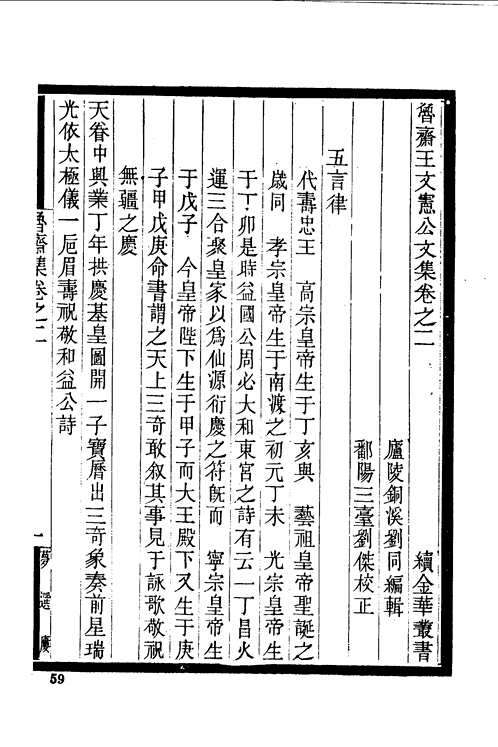 魯齋王文憲公文集卷之二 續金華叢書
廬陵銅溪劉同編輯
鄱陽三臺劉傑校正
五言律
代壽忠王 高宗皇帝生于丁亥與 藝祖皇帝聖誕之
歲同 孝宗皇帝生于南渡之初元丁未 光宗皇帝生
于丁卯是時益國公周必大和東宮之詩有云一丁昌火
運三合聚皇家以為仙源衍慶之符旣而 寧宗皇帝生
于戊子 今皇帝陛下生于甲子而大王殿下又生于庚
子甲戊庚命書謂之天上三奇敢叙其事見于詠歌敬祝
無疆之慶
天眷中興業丁年拱慶基皇圖開一子寶曆出三奇象奏前星瑞
光依太極儀一巵眉壽祝敬和益公詩
魯齋集卷之二 一 夢選廔
59